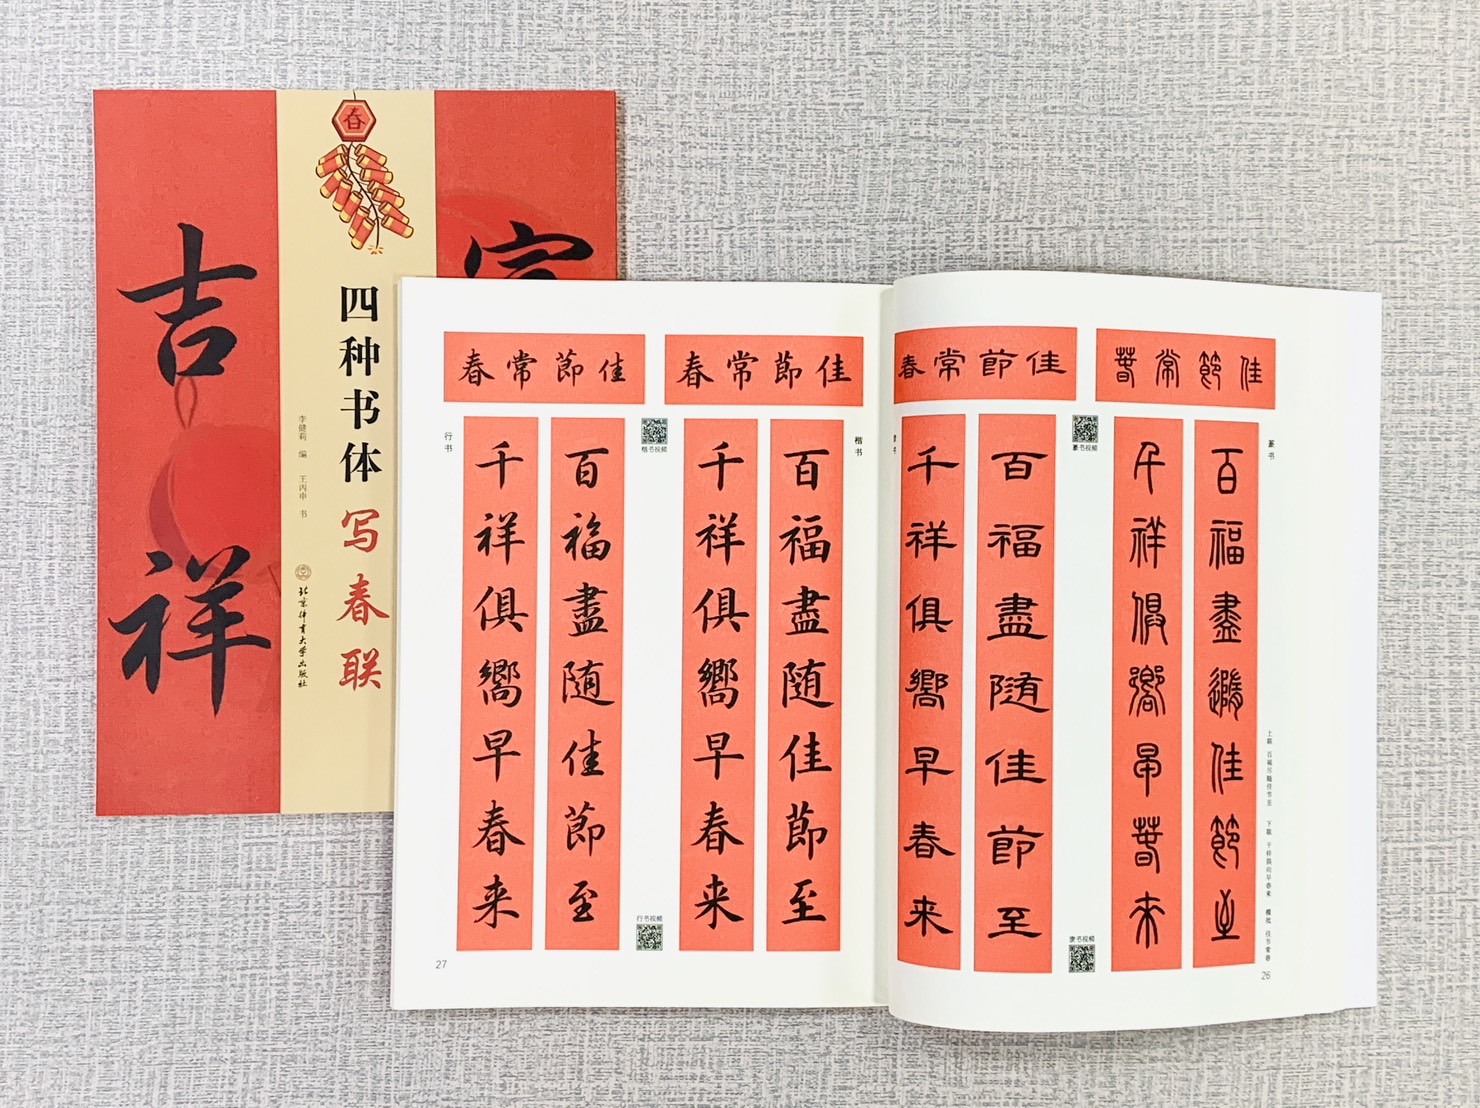 春
吉祥
四种书体
写春联
李健莉 编 王丙申 书
北京体育大学出版社
佳節常春
篆书
百福盡隨佳節至
千祥俱嚮早春来
篆书视频
上联 百福尽随佳节至 下联 千祥俱向早春来 横批 佳节常春
26
佳節常春
百福盡随佳節至
千祥俱嚮早春来
隶书视频
佳節常春
楷书
百福盡随佳節至
千祥俱嚮早春来
楷书视频
佳節常春
行书
百福盡随佳節至
千祥俱嚮早春来
行书视频
27